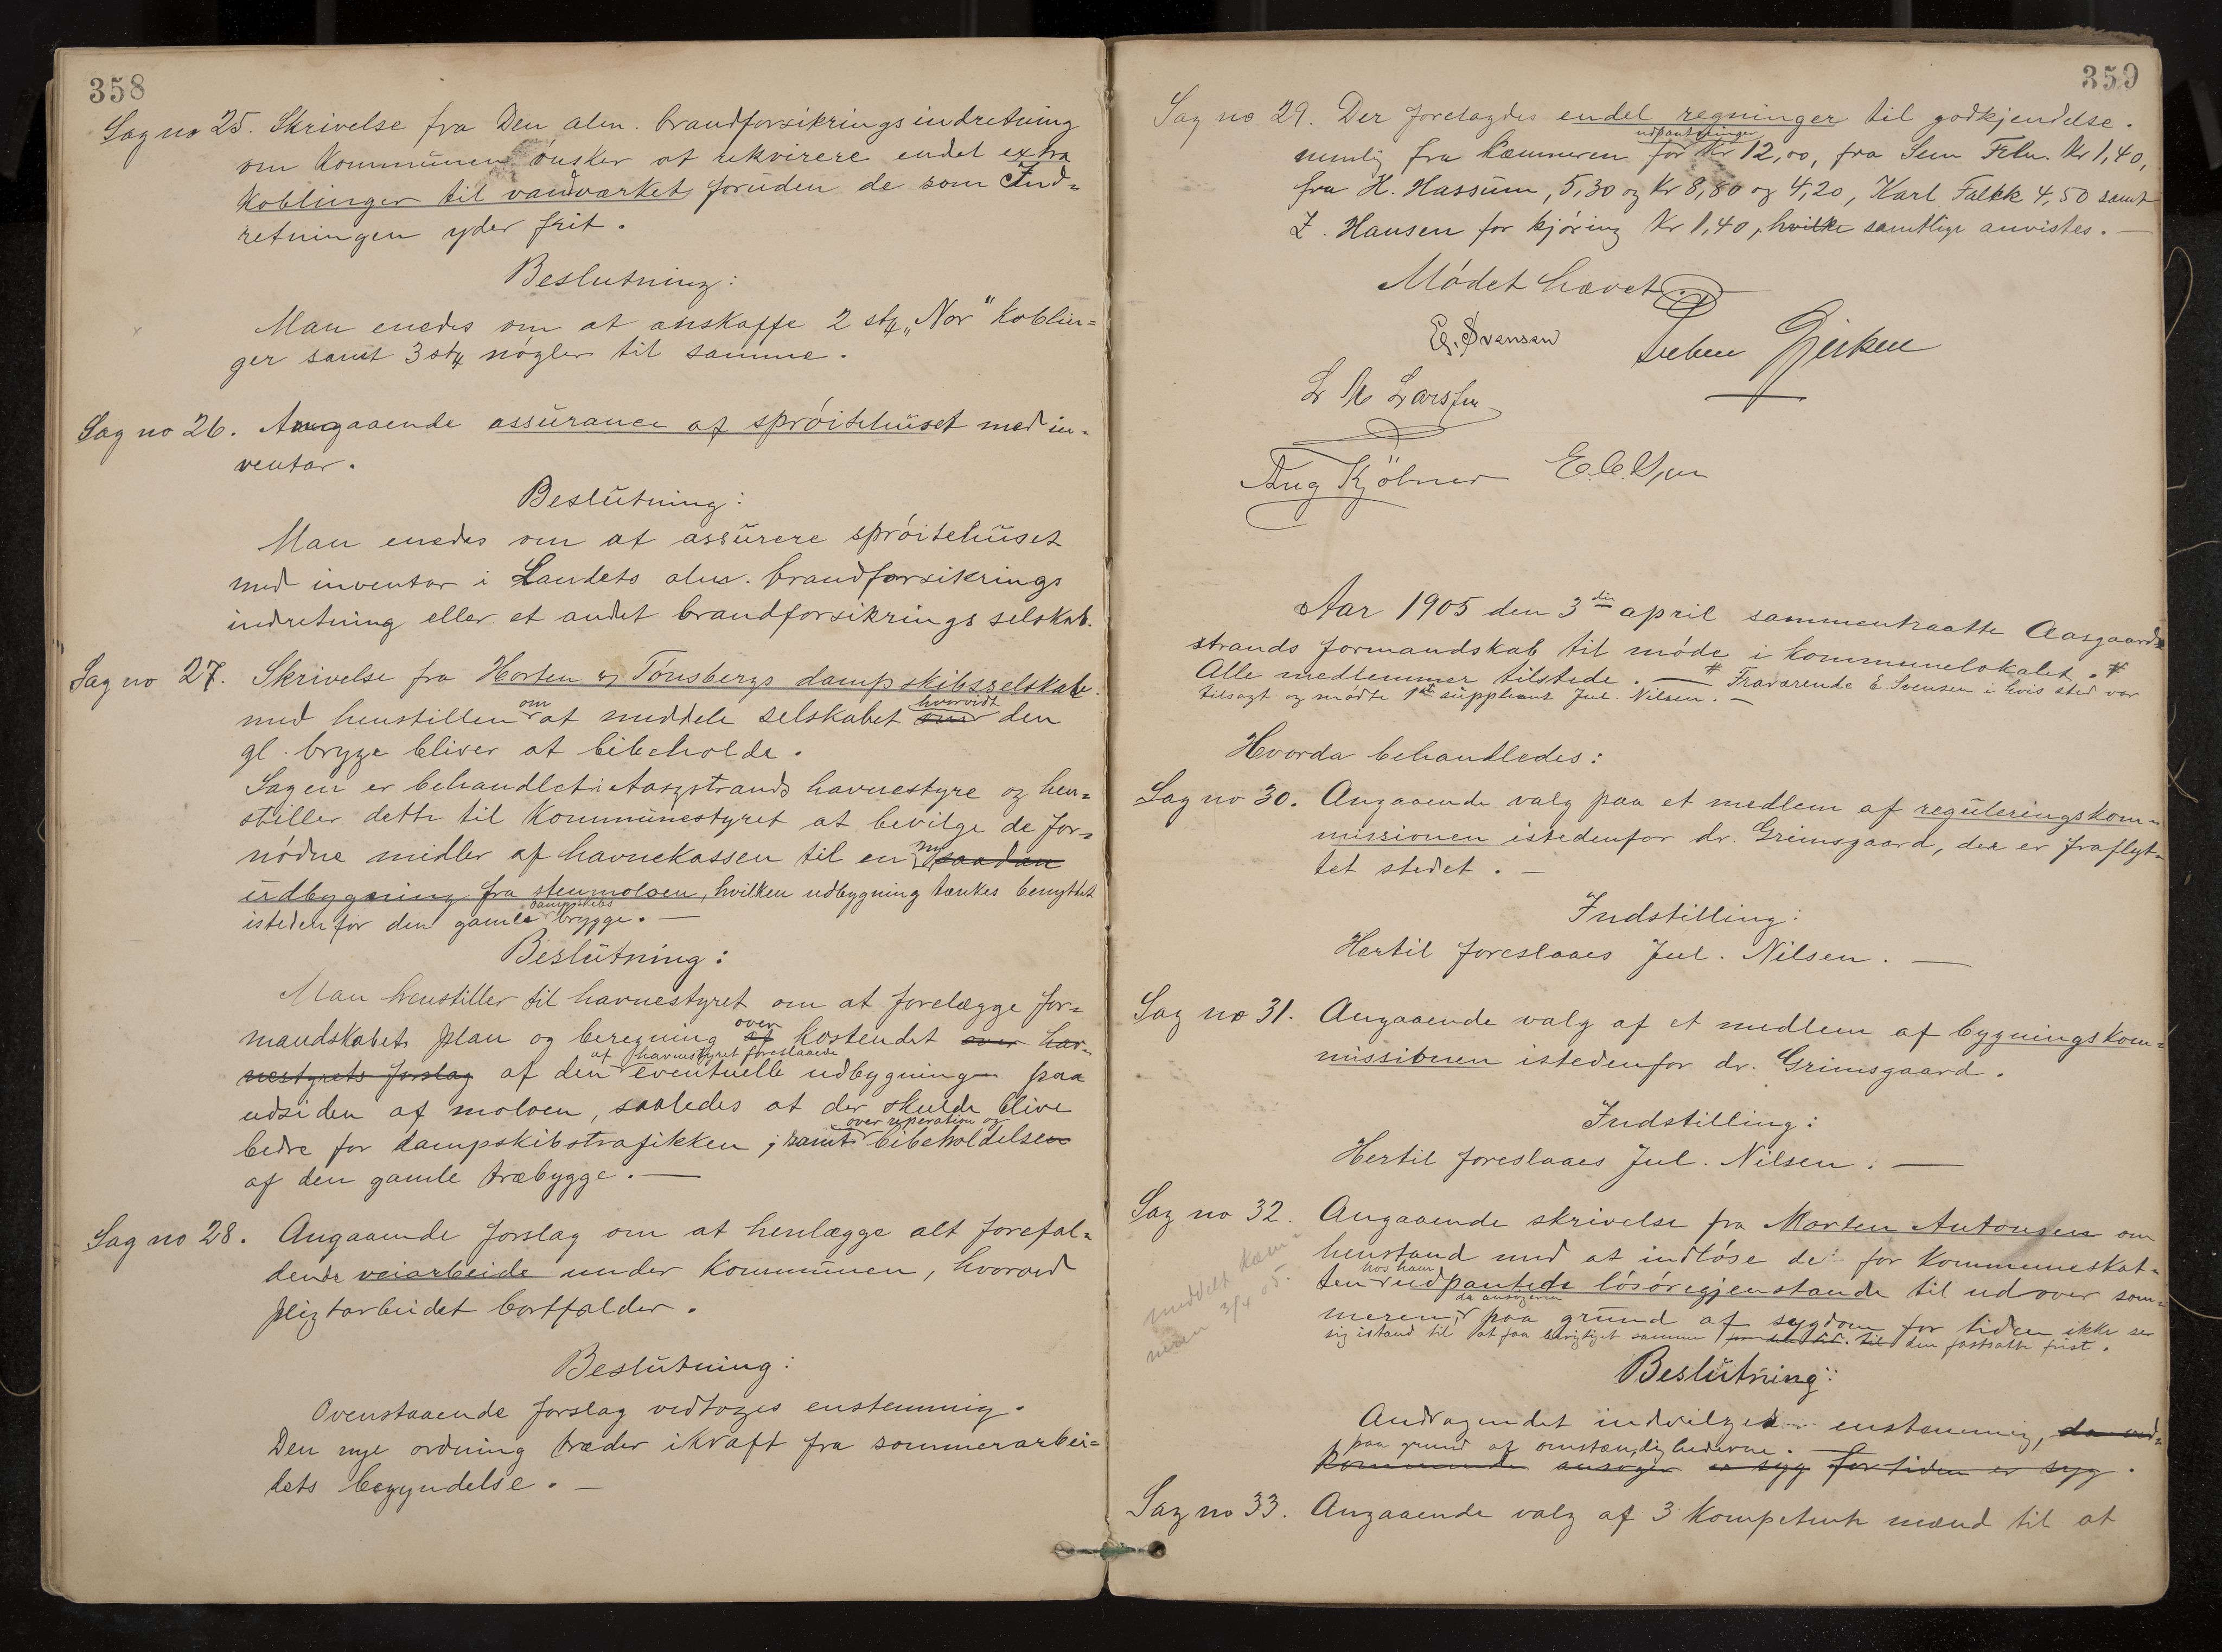 358
Sag no 25. Skrivelse fra Den alm. brandforsikringsindretning
om Kommunen ønsker at rekvirere endel extra
Koblinger til vandværket foruden de som Ind=
retningen yder frit.
Beslutning:
Man enedes om at anskaffe 2 stk „Nor" koblin=
ger samt 3 stk nøgler til samme.
Sag no 26. Angaaende assurance af sprøitehuset med in=
ventar.
Beslutning:
Man enedes om at assurere sprøitehuset
med inventar i Landets alm. brandforsikrings
indretning eller et andet brandforsikrings selskab.
Sag no 27. Skrivelse fra Horten og Tønsbergs dampskibsselskab.
med henstillen om at meddele selskabet hvorvidt den
gl. brygge bliver at bibeholde.
Sagen er behandlet i Aasgstrands havnestyre og hen=
stiller dette til Kommunestyret at bevilge de for=
nødne midler af havnekassen til en ny saadan
udbygning fra stenmoloen, hvilken udbygning tænkes benyttet
istedenfor den gamle dampskibs brygge. —
Beslutning:
Man henstiller til havnestyret om at forelægge for=
mandskabet plan og beregning over af kostendet over hav=
nestyrets forslag af den af havnestyret foreslaaede eventuelle udbygning paa
udsiden af moloen, saaledes at der skulde blive
bedre for dampskibstrafikken; samt over reperation og bibeholdelsen
af den gamle træbygge. —
Sag no 28. Angaaende forslag om at henlægge alt forefal=
dende veiarbeide under Kommunen, hvorved
pligtarbeidet bortfalder.
Beslutning:
Ovenstaaende forslag vedtoges enstemmig.
Den nye ordning træder ikraft fra sommerarbei=
dets begyndelse. —
359
Sag no 29. Der forelagdes endel regninger til godkjendelse.
nemlig fra Kæmneren udpantninger for Kr 12,00, fra Sem Kr 1,40,
fra H. Hassum, 5,30 og Kr 8,80 og 4,20, Karl Falck 4,50 samt
Z. Hansen for kjøring Kr 1,40, hvilke samtlige anvistes. —
Mødet hævet
E. Svensen
L M Larssen
Aug Kjøbner
Aar 1905 den 3die april sammentraatte Aasgaard
strands formandskab til møde i kommunelokalet. #
Alle medlemmer tilstede. — # Fraværende E. Svensen i hvis sted var
tilsagt og mødte 1ste suppleant Jul. Nilsen. —
Hvorda behandledes:
Sag no 30. Angaaende valg paa et medlem af reguleringskom=
missionen istedenfor dr. Grimsgaard, der er fraflyt=
tet stedet. —
Indstilling:
Hertil foreslaaes Jul. Nilsen. —
Sag no 31. Angaaende valg af et medlem af bygningskom=
missionen istedenfor dr. Grimsgaard.
Indstilling:
Hertil foreslaaes Jul. Nilsen. —
Sag no 32. Angaaende skrivelse fra Morten Antonsen om
henstand med at indløse de for Kommuneskat=
ten hos ham udpantede løsøregjenstande til udover som=
meren, da ansøgeren paa grund af sygdom for tiden ikke ser
sig istand til at faa berigtiget samme den fastsatte frist.
meddelt kæm=
neren 3/4 05.
Beslutning:
Andragendet indvilges enstemmig, da ved=
paa grund af omstændighederne. —
kommende ansøger er syg for tiden er syg.
Sag no 33. Angaaende valg af 3 kompetente mænd til at